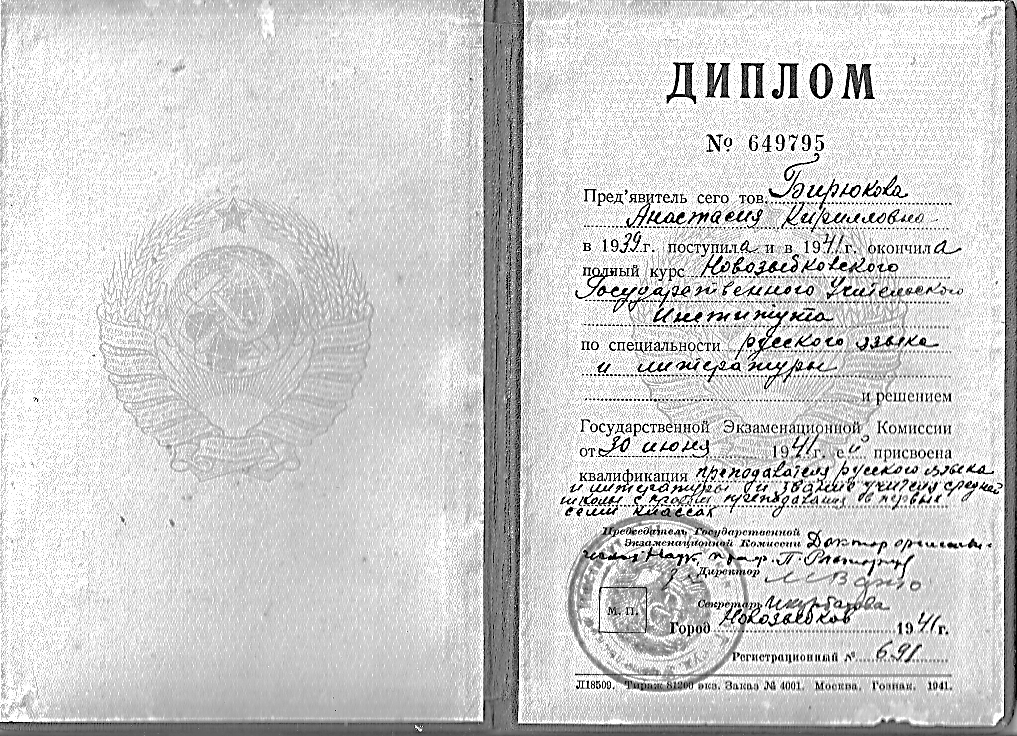 ДИПЛОМ
№ 649795
Пред'явитель сего тов. Бирюкова
Анастасия Кирилловна
в 1939г. поступила и в 1941г. окончила
полный курс Новозыбковского
Государственного Учительского
Института
по специальности русского языка
и литературы
и решением
Государственной Экзаменационной Комиссии
от 30 июня 1941г. ей присвоена
квалификация преподавателя русского языка
и литературы и звание учителя средней
школы с правом преподавания в первых
семи классах
Председатель Государственной
Экзаменационной Комиссии Доктор
Наук, проф. П.
Директор
М. П.
Секретарь
Город Новозыбков 1941г.
Регистрационный № 691
Л18509. Тираж 81200 экз. Заказ № 4001. Москва. Гознак. 1941.